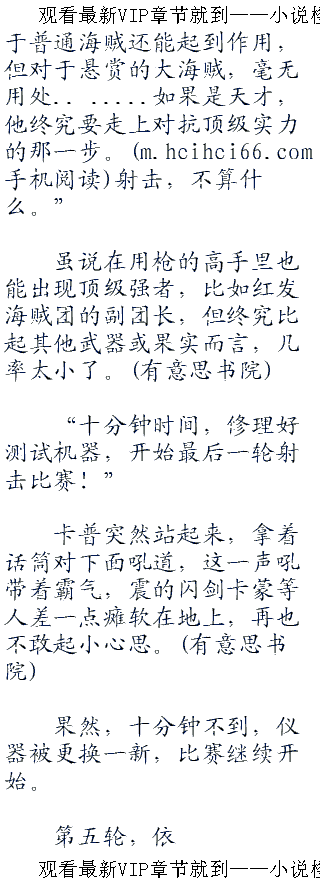 观看最新VIP章节就到——小说
于普通海贼还能起到作用，
但对于悬赏的大海贼，毫无
用处.. .....如果是天才，
他终究要走上对抗顶级实力
的那一步。(m.hcihci66.com
手机阅读)射击，不算什
么。”
虽说在用枪的高手里也
能出现顶级强者，比如红发
海贼团的副团长，但终究比
起其他武器或果实而言，几
率太小了。(有意思书院)
“十分钟时间，修理好
测试机器，开始最后一轮射
击比赛！”
卡普突然站起来，拿着
话筒对下面吼道，这一声吼
带着霸气，震的闪剑卡蒙等
人差一点瘫软在地上，再也
不敢起小心思。(有意思书
院)
果然，十分钟不到，仪
器被更换一新，比赛继续开
始。
第五轮，依
观看最新VIP章节就到——小说